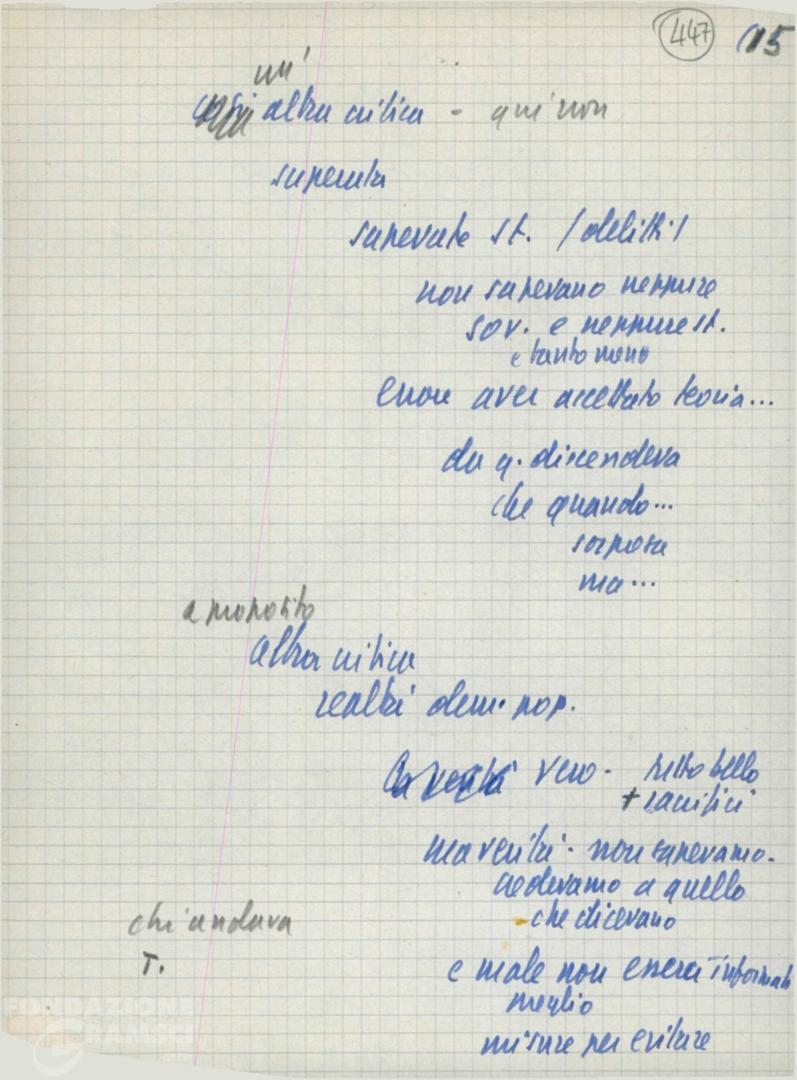 447 15
un'
altra critica - qui non
superata
sapevate St. (delitti)
non sapevano neppure
sov. e neppure st.
e tanto meno
errore aver accettato teoria...
da q. discendeva
che quando...
sorpresa
ma...
a proposito
altra critica
realtà dem. pop.
La verità vero - tutto bello
+ sacrifici
ma verità - non sapevamo.
credevamo a quello
- che dicevano
chi andava
T.
e male non esserci informati
meglio
misure per evitare
FONDAZIONE
GRAMSCI